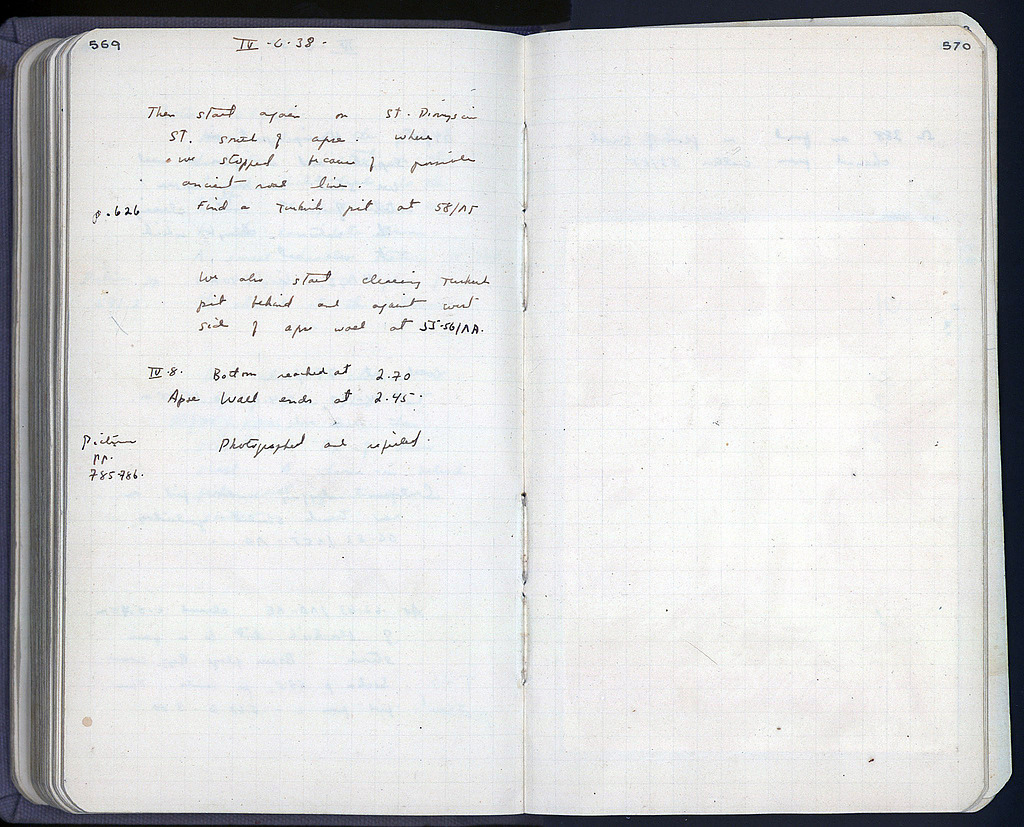 569
IV-6-38-
Then start again on St. Dionysius
St. south of apse. where
we stopped because of possible
ancient road line.
p.626 Find a Turkish pit at 58/ΛΓ
We also start clearing Turkish
pit behind and against west
side of apse wall at 55-56/ΛΑ.
IV.8. Bottom reached at 2.70
Apse Wall ends at 2.45.
Picture Photographed and
pp.
785-786.
570